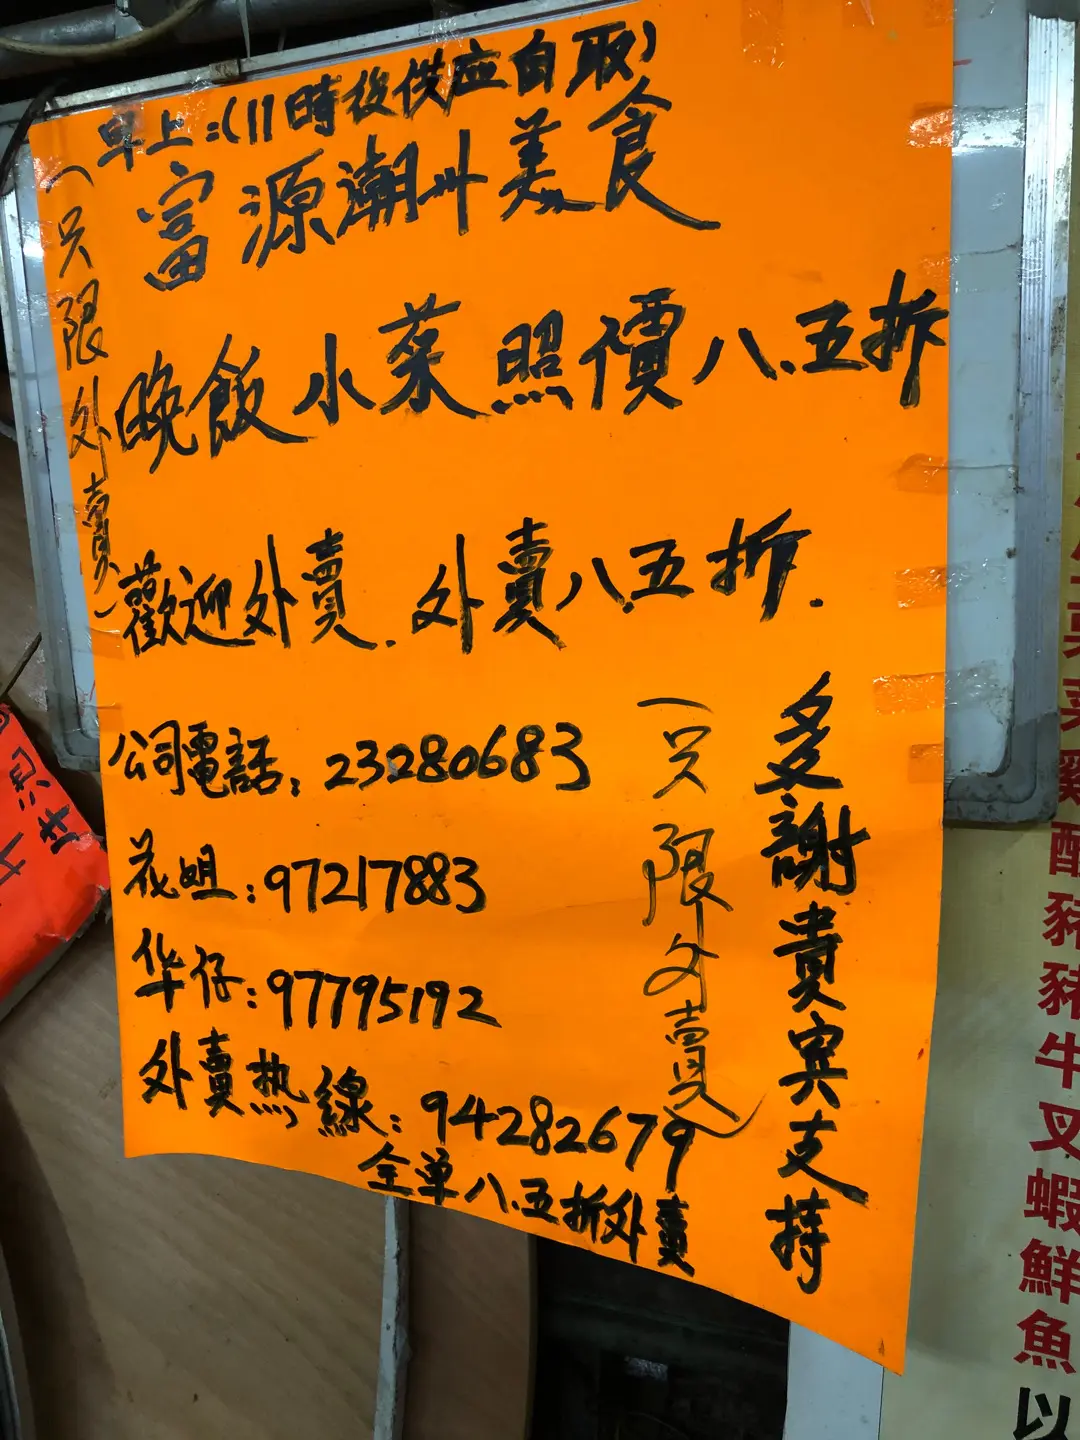 早上:(11時後供应自取)
富源潮州美食
(只限外賣)
晚飯小菜照價八.五折
歡迎外賣.外賣八.五折.
公司電話:23280683
花姐:97217883
华仔:97795192
外賣热線:94282679
全单八.五折外賣
(只限外賣)
多謝貴宾支持
豬豬牛叉蝦鮮魚以